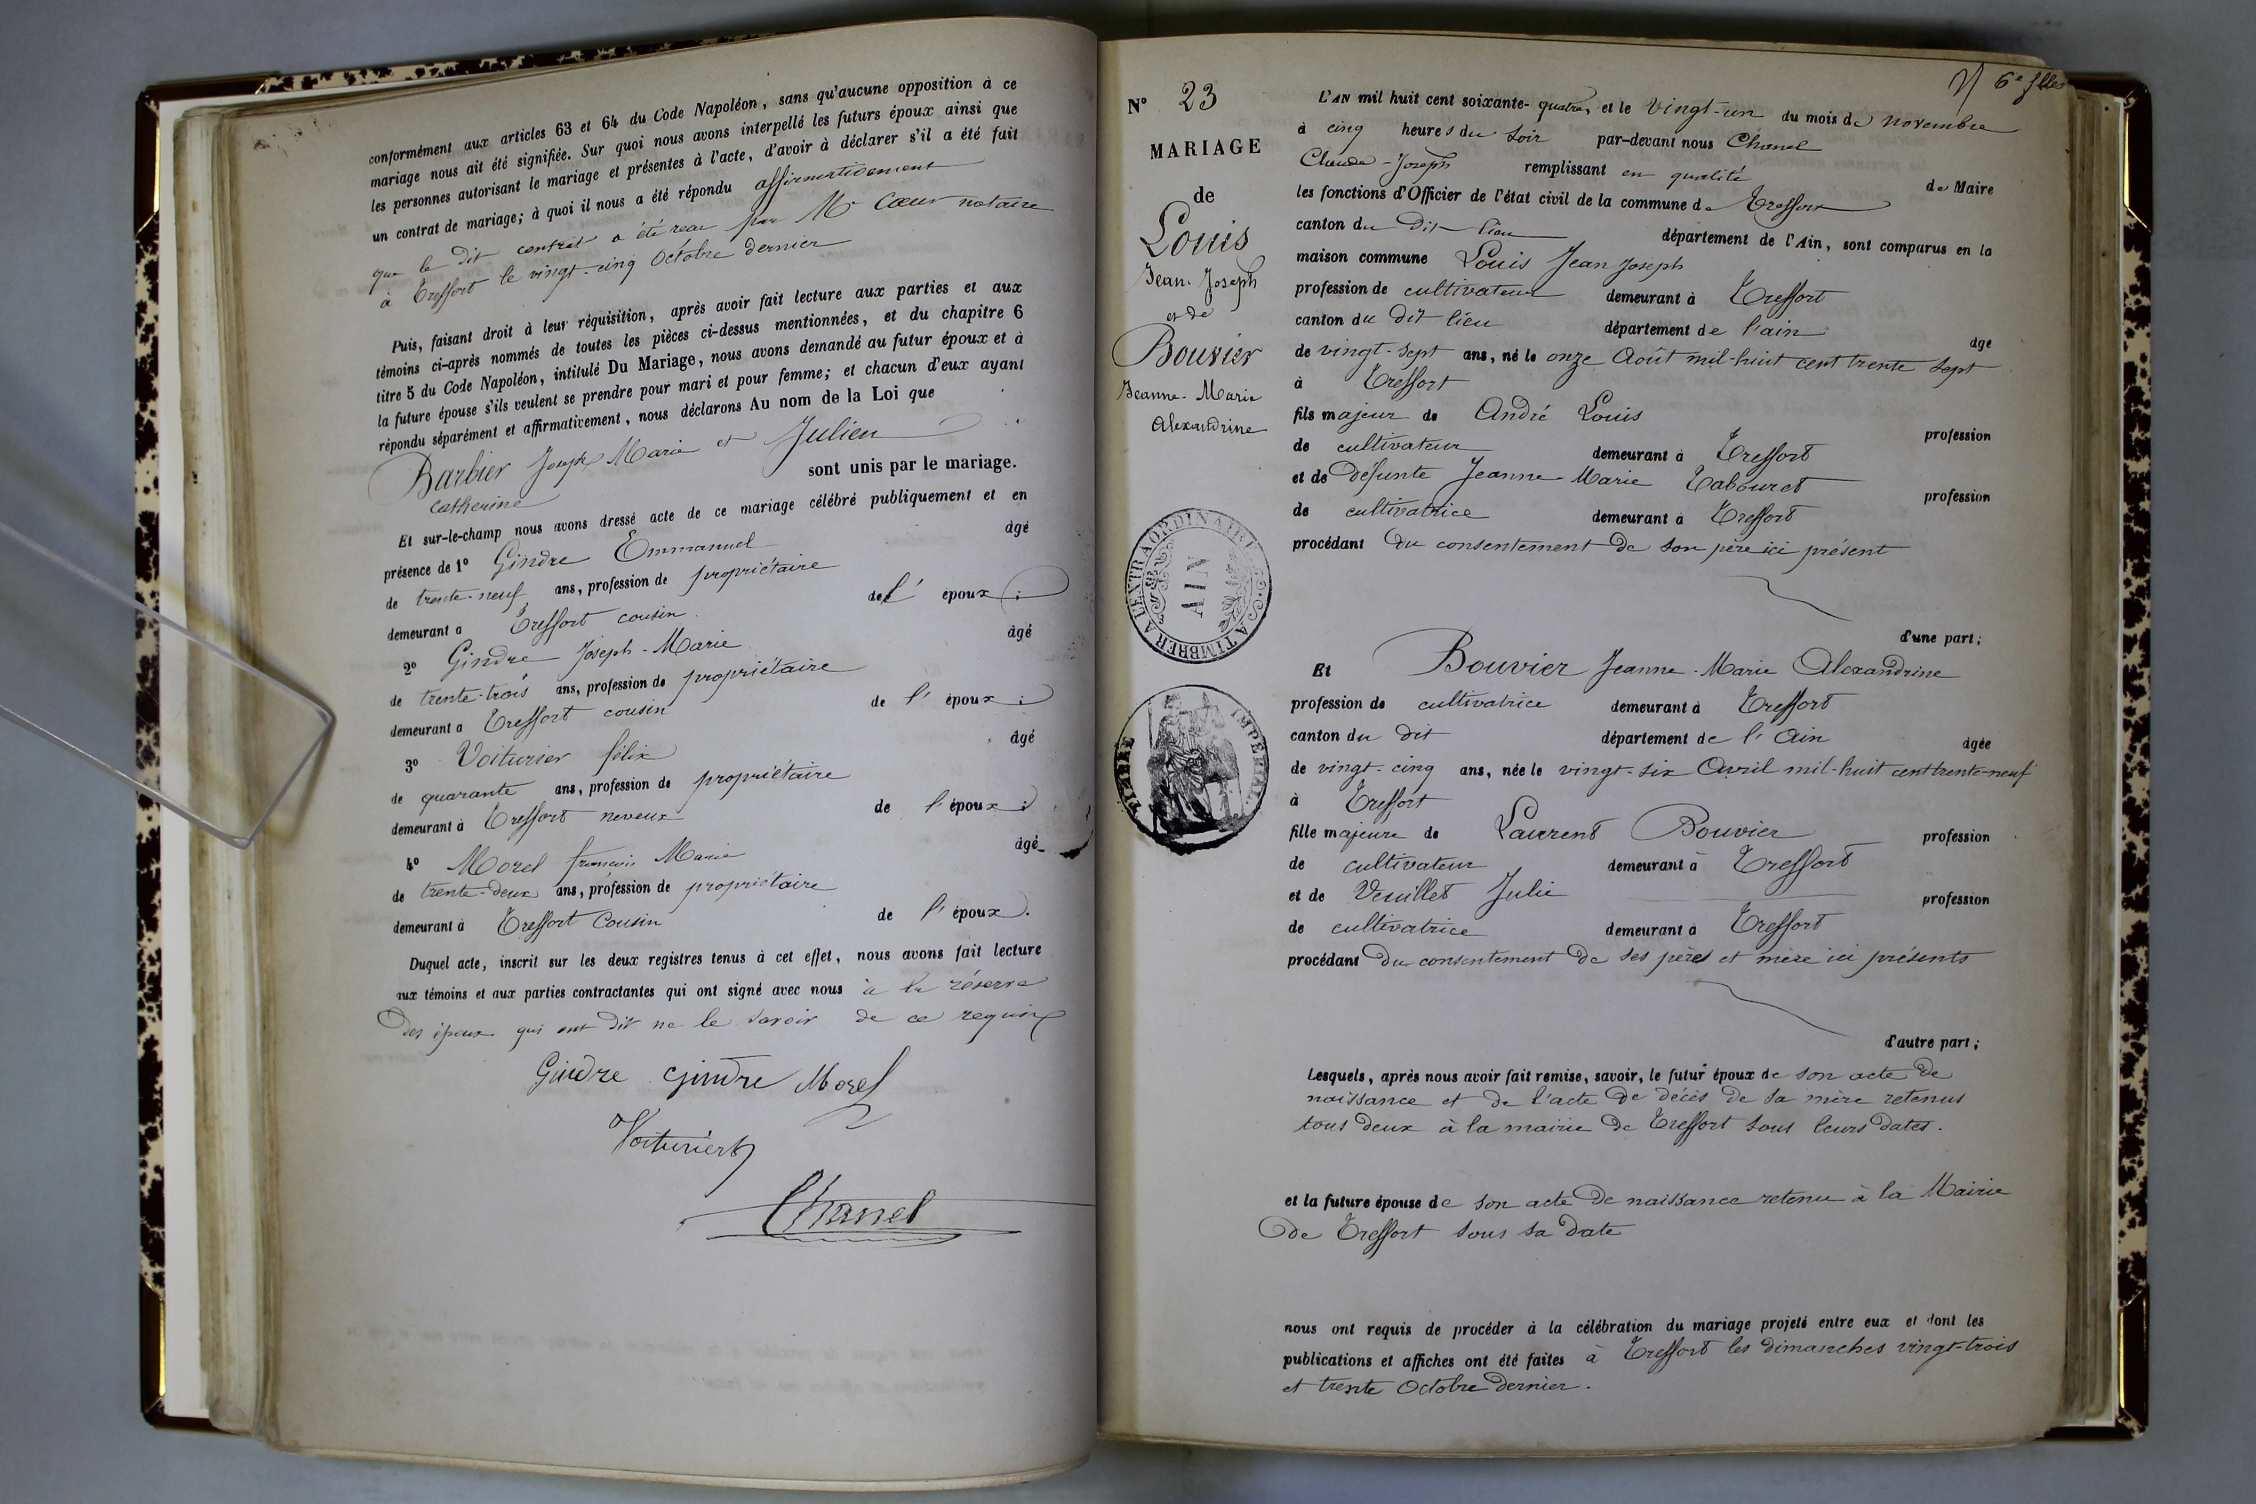 conformément aux articles 63 et 64 du Code Napoléon, sans qu'aucune opposition à ce
mariage nous ait été signifiée. Sur quoi nous avons interpellé les futurs époux ainsi que
les personnes autorisant le mariage et présentes à l'acte, d'avoir à déclarer s'il a été fait
un contrat de mariage; à quoi il nous a été répondu affirmativement
que le dit contrat a été recu par Mr Coeur notaire
à Treffort le vingt-cinq Octobre dernier
Puis, faisant droit à leur réquisition, après avoir fait lecture aux parties et aux
témoins ci-après nommés de toutes les pièces ci-dessus mentionnées, et du chapitre 6
titre 5 du Code Napoléon, intitulé Du Mariage, nous avons demandé au futur époux et à
la future épouse s'ils veulent se prendre pour mari et pour femme; et chacun d'eux ayant
répondu séparément et affirmativement, nous déclarons Au nom de la Loi que
Barbier Joseph Marie et Julien
catherine sont unis par le mariage.
Et sur-le-champ nous avons dressé acte de ce mariage célébré publiquement et en
présence de 1° Gindre Emmanuel âgé
de trente-neuf ans, profession de propriétaire
demeurant a Treffort cousin de l' époux ;
2° Gindre Joseph-Marie âgé
de trente-trois ans, profession de propriétaire
demeurant a Treffort cousin de l' époux ;
3° Voiturier félix âgé
de quarante ans, profession de propriétaire
demeurant à Treffort neveux de l'époux ;
4° Morel francois Marie âgé
de trente-deux ans, profession de propriétaire
demeurant à Treffort Cousin de l'époux.
Duquel acte, inscrit sur les deux registres tenus à cet effet, nous avons fait lecture
aux témoins et aux parties contractantes qui ont signé avec nous à la réserve
des époux qui ont dit ne le savoir de ce requis
Gindre Gindre Morel
Voiturier
Chanel
6e flles
N° 23
MARIAGE
de
Louis
Jean-Joseph
et de
Bouvier
Jeanne-Marie
Alexandrine
A L'EXTRAORDINAIRE
AIN
A TIMBRER
TIMBRE IMPÉRIAL
L'AN mil huit cent soixante-quatre, et le vingt-un du mois de novembre
à cinq heures du soir par-devant nous Chanel
Claude-Joseph remplissant en qualité de Maire
les fonctions d'Officier de l'état civil de la commune de Treffort
canton du dit lieu département de l'Ain, sont comparus en la
maison commune Louis Jean Joseph
profession de cultivateur demeurant à Treffort
canton du dit lieu département de l'ain âge
de vingt-sept ans, né le onze Août mil-huit cent trente sept
à Treffort
fils majeur de André Louis profession
de cultivateur demeurant à Treffort
et de défunte Jeanne-Marie Tabouret profession
de cultivatrice demeurant à Treffort
procédant du consentement de son père ici présent
d'une part;
Et Bouvier Jeanne-Marie Alexandrine
profession de cultivatrice demeurant à Treffort
canton du dit département de l'Ain âgée
de vingt-cinq ans, née le vingt-six Avril mil-huit cent trente-neuf
à Treffort
fille majeure de Laurent Bouvier profession
de cultivateur demeurant à Treffort
et de Veuillet Julie profession
de cultivatrice demeurant à Treffort
procédant du consentement de ses pères et mère ici présents
d'autre part;
Lesquels, après nous avoir fait remise, savoir, le futur époux de son acte de
naissance et de l'acte de décès de sa mère retenus
tous deux à la mairie de Treffort sous leurs dates.
et la future épouse de son acte de naissance retenu à la Mairie
de Treffort sous sa date
nous ont requis de procéder à la célébration du mariage projeté entre eux et dont les
publications et affiches ont été faites à Treffort les dimanches vingt-trois
et trente Octobre dernier.